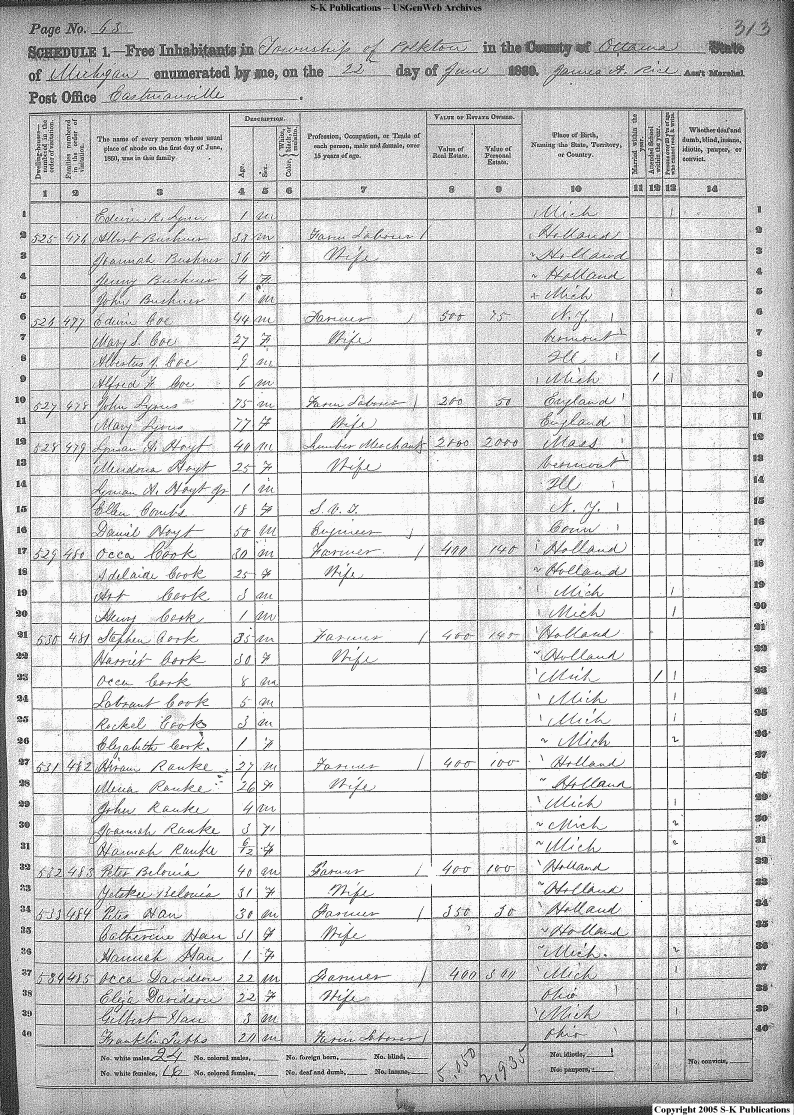 S-K Publications – USGenWeb Archives
Page No. 63
313
SCHEDULE 1.—Free Inhabitants in Township of Polkton in the County of Ottawa State
of Michigan enumerated by me, on the 22 day of June 1860. James A. Rice Ass't Marshal
Post Office Eastmanville.
Dwelling-houses—numbered in the order of visitation.
Families numbered in the order of visitation.
The name of every person whose usual place of abode on the first day of June, 1860, was in this family.
DESCRIPTION.
Age.
Sex.
Color, White, black, or mulatto.
Profession, Occupation, or Trade of each person, male and female, over 15 years of age.
VALUE OF ESTATE OWNED.
Value of Real Estate.
Value of Personal Estate.
Place of Birth, Naming the State, Territory, or Country.
Married within the year.
Attended School within the year.
Persons over 20 y'rs of age who cannot read & write.
Whether deaf and dumb, blind, insane, idiotic, pauper, or convict.
1 2 3 4 5 6 7 8 9 10 11 12 13 14
1 Edwin R. Lynn 1 m Mich 1
2 525 476 Albert Bushner 33 m Farm Labourer Holland 2
3 Joannah Bushner 36 F Wife Holland 3
4 Jenny Bushner 4 F Holland 4
5 John Bushner 1 m Mich 5
6 526 477 Edwin Coe 44 m Farmer 500 75 N.Y. 6
7 Mary S. Coe 27 F Wife Vermont 7
8 Albertus J. Coe 9 m Ill 1 8
9 Alfred F. Coe 6 m Mich 1 9
10 527 478 John Lyons 75 m Farm Laborer 200 50 England 10
11 Mary Lyons 77 F Wife England 11
12 528 479 Lyman A. Hoyt 40 m Lumber Merchant 2000 2000 Mass 12
13 Mendova Hoyt 25 F Wife Vermont 13
14 Lyman A. Hoyt Jr 1 m Ill 14
15 Ellen Combs 18 F N.Y. 15
16 Daniel Hoyt 50 m Engineer Conn 16
17 529 480 Occa Cook 30 m Farmer 400 140 Holland 17
18 Adelaide Cook 25 F Wife Holland 18
19 Art Cook 3 m Mich 19
20 Henry Cook 1 m Mich 20
21 530 481 Stephen Cook 35 m Farmer 400 140 Holland 21
22 Harriet Cook 30 F Wife Holland 22
23 Occa Cook 8 m Mich 1 23
24 Labrant Cook 5 m Mich 24
25 Rockel Cook 3 m Mich 25
26 Elizabeth Cook. 1 F Mich 26
27 531 482 Hiram Ranke 27 m Farmer 400 100 Holland 27
28 Mena Ranke 26 F Wife Holland 28
29 John Ranke 4 m Mich 29
30 Joannah Ranke 3 F Mich 30
31 Hannah Ranke 6/12 F Mich 31
32 532 483 Peter Belonia 40 m Farmer 400 100 Holland 32
23 Belonia 31 F Wife Holland 33
34 533 484 Peter Han 30 m Farmer 350 30 Holland 34
35 Catherine Han 31 F Wife Holland 35
36 Hannah Han 1 F Mich. 36
37 534 485 Occa Davidson 22 m Farmer 400 300 Mich 37
38 Eliza Davidson 22 F Wife Ohio 38
39 Gilbert Han 3 m Mich 39
40 Franklin Tubbs 20 m Farm Laborer Ohio 40
No. white males, 24 No. colored males, No. foreign born, No. blind, 5,050 2,935 No. idiotic, No. convicts,
No. white females, 16 No. colored females, No. deaf and dumb, No. insane, No. paupers,
Copyright 2005 S-K Publications